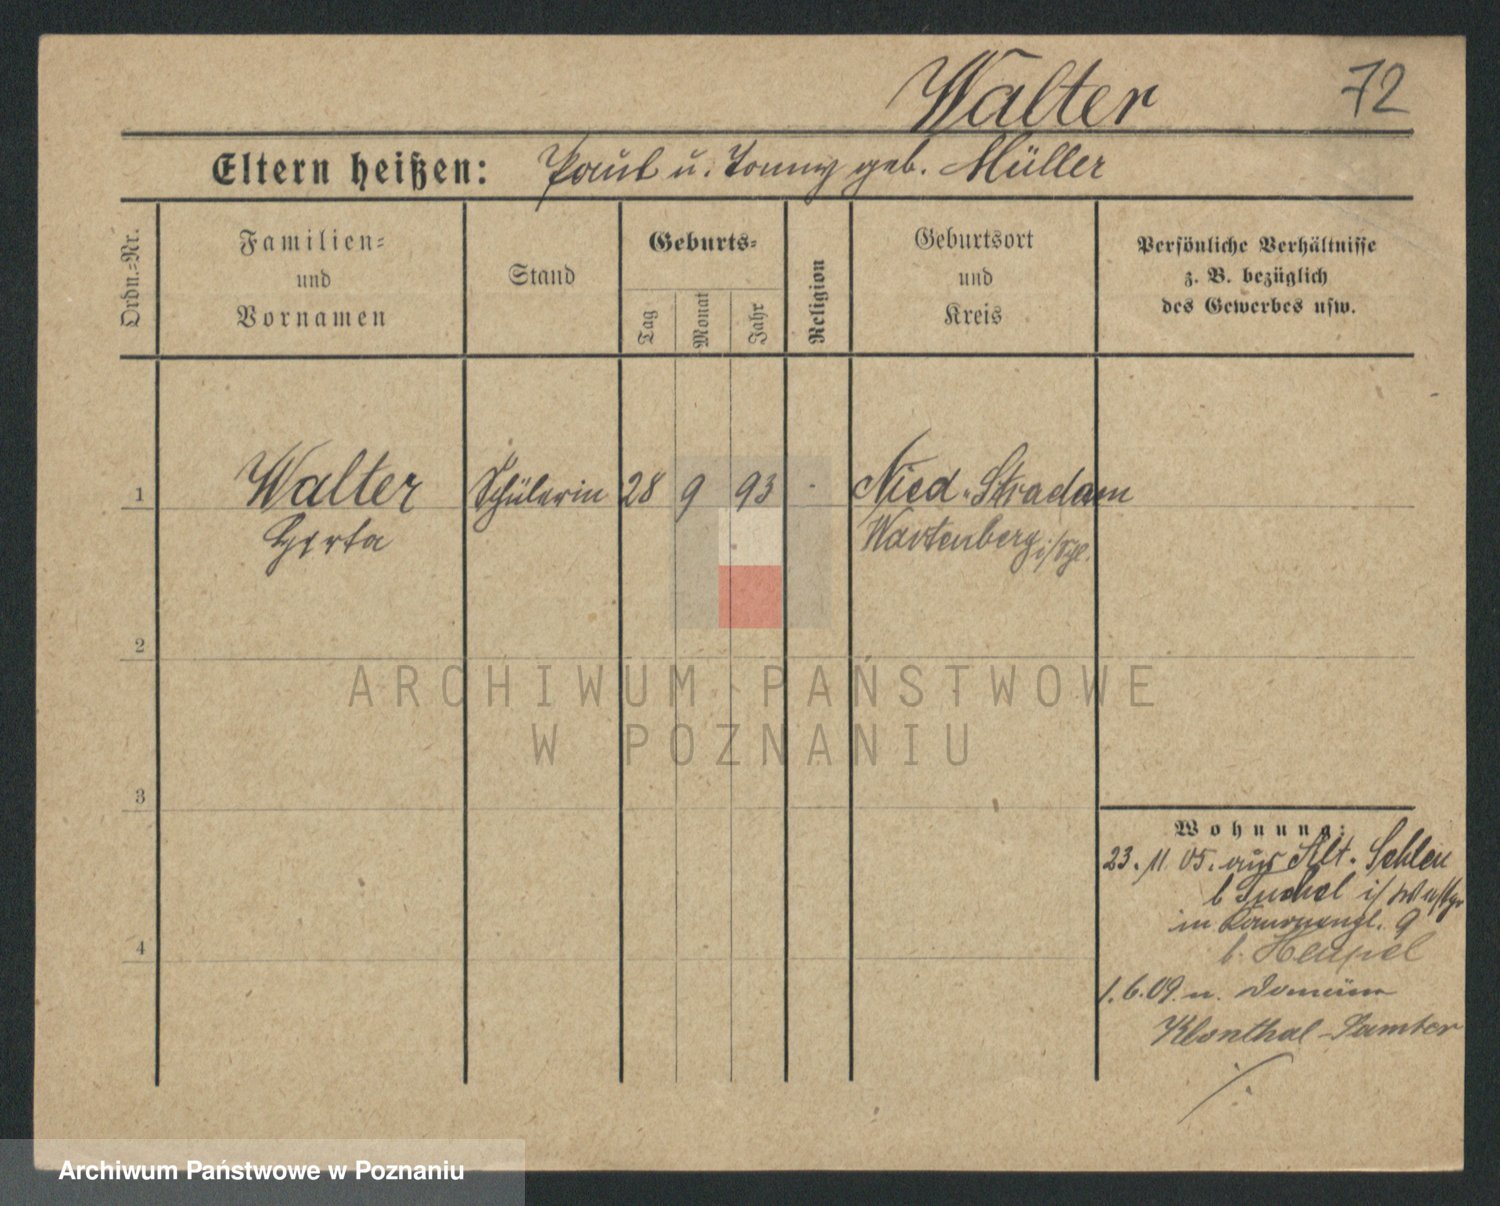 Walter 72
Eltern heißen: Paul u. Tonny geb. Müller
Ordn.=Nr.
Familien=
und
Vornamen
Stand
Geburts=
Tag
Monat
Jahr
Religion
Geburtsort
und
Kreis
Persönliche Verhältnisse
z. B. bezüglich
des Gewerbes usw.
1 Walter Schülerin 28 9 93 Nied. Stradam
Herta Wartenberg i/Schl.
2
ARCHIWUM PAŃSTWOWE
W POZNANIU
3
Wohnung:
23. 11. 05. aus Alt. Sehlen
b Tuchel i/
in 9
4
b. Hempel
1. 6. 09. n.
Samter
Archiwum Państwowe w Poznaniu